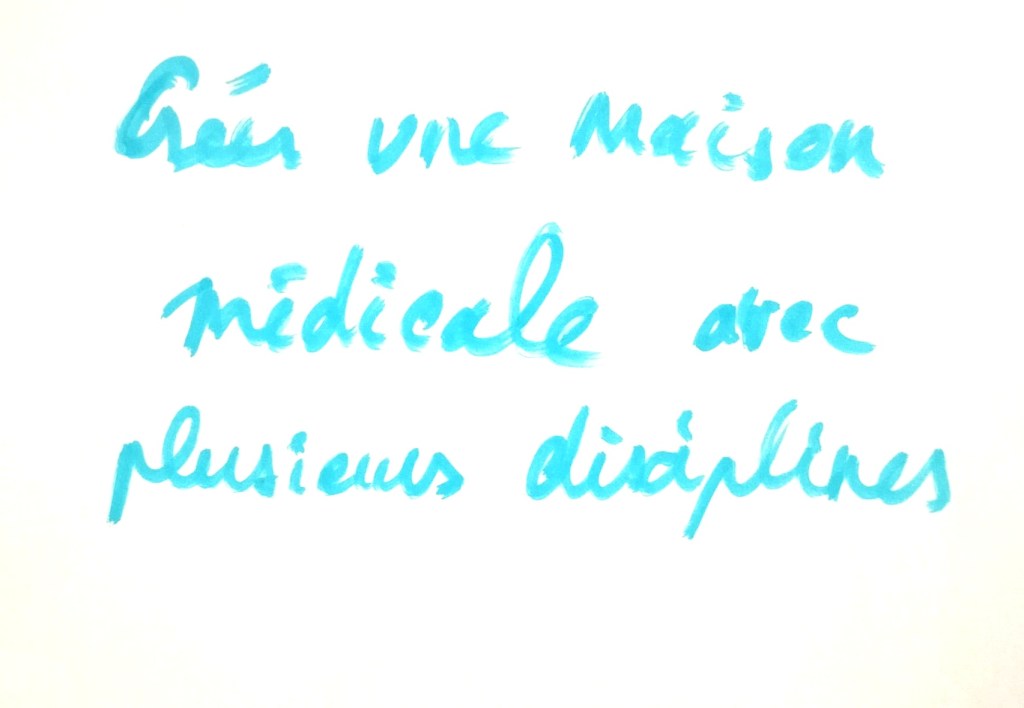 Créer une maison
médicale avec
plusieurs disciplines